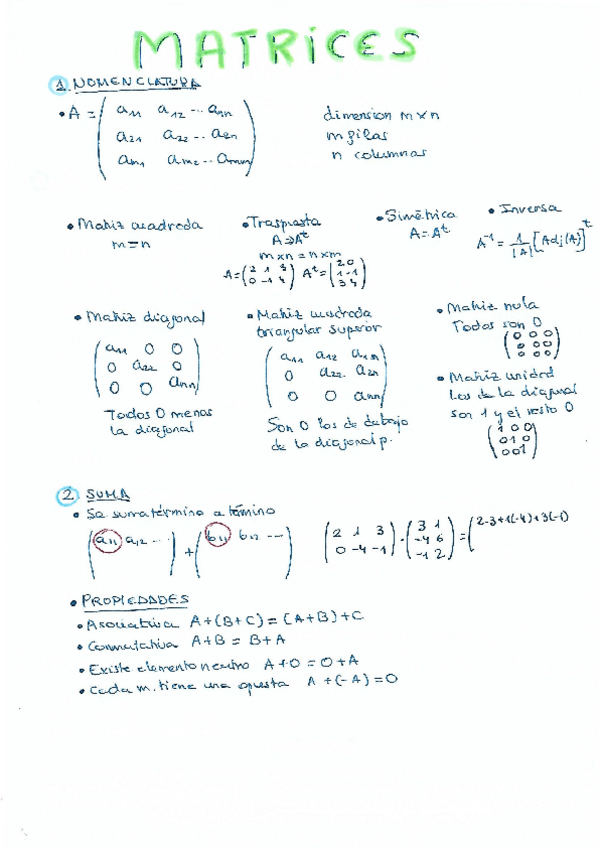 MATRICES
1. NOMENCLATURA
• A = ( a11 a12 ... a1n
a21 a22 ... a2n
am1 am2 ... amn )
dimension m×n
m filas
n columnas
• Matriz cuadrada
m=n
• Traspuesta
A → A^t
m×n = n×m
A = ( 2 1 3
0 -1 4 ) A^t = ( 2 0
1 -1
3 4 )
• Simétrica
A = A^t
• Inversa
A^-1 = 1/|A| [Adj(A)]^t
• Matriz diagonal
( a11 0 0
0 a22 0
0 0 ann )
Todos 0 menos
la diagonal
• Matriz cuadrada
triangular superior
( a11 a12 a1n
0 a22 a2n
0 0 ann )
Son 0 los de debajo
de la diagonal p.
• Matriz nula
Todos son 0
( 0 0 0
0 0 0
0 0 0 )
• Matriz unidad
Los de la diagonal
son 1 y el resto 0
( 1 0 0
0 1 0
0 0 1 )
2. SUMA
• Se suma término a término
( a11 a12 ... ) + ( b11 b12 ... )
( 2 1 3
0 -4 -1 ) · ( 3 1
-4 6
-1 2 ) = ( 2·3+1(-4)+3(-1)
• PROPIEDADES
• Asociativa A+(B+C) = (A+B)+C
• Conmutativa A+B = B+A
• Existe elemento neutro A+0 = 0+A
• Cada m. tiene una opuesta A+(-A)=0